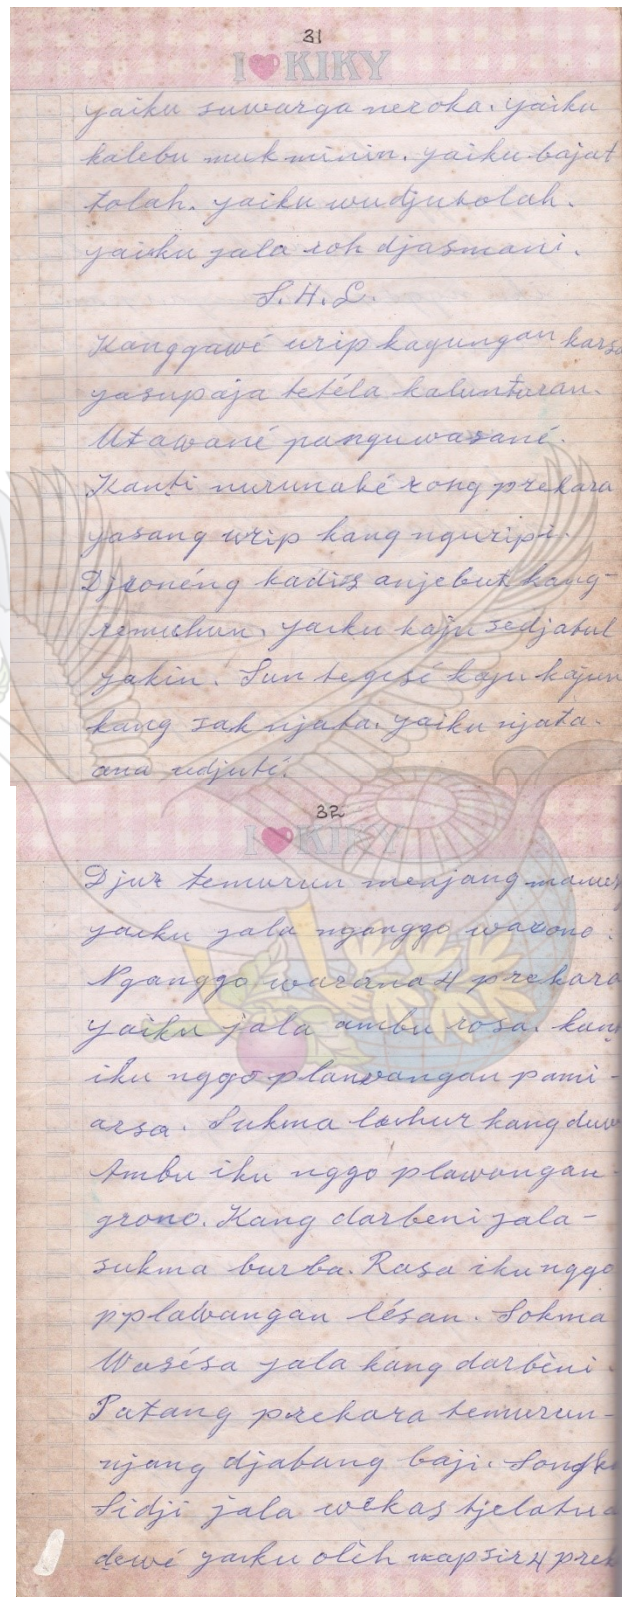 31
I KIKY
yaiku suwarga neroka. yaiku
kalebu mukminin. yaiku bajat
tolah. yaiku wudjutolah.
yaiku jala roh djasmani.
S.H.L.
Kanggawé urip kagungan karsa
yasupaja tetéla kalunturan.
Utawané panguwasané.
Kanti nurunaké rong prekara
yasang urip kang nguripi.
Djroning kadis anjebut kang-
remuhun. yaiku kaju sedjatul
yakin. Sun tegesé kaju kajun
kang sak njata. yaiku njata-
ana udjuté.
32
I KIKY
Djur temurun menjang
yaiku jala nganggo warono.
Nganggo warana 4 prekara
yaiku jala ambu rosa.
iku nggo planwangan pami-
arsa. Sukma luhur kang duw
Ambu iku nggo plawongan-
grono. Kang darbeni jala-
sukma burba. Rasa iku nggo
pplawangan lésan. Sokma
Wasésa jala kang darbèni.
Patang prekara temurun-
njang djabang baji.
Sidji jala wekas tjelatu
dewé yaiku olih napsir 4 prek